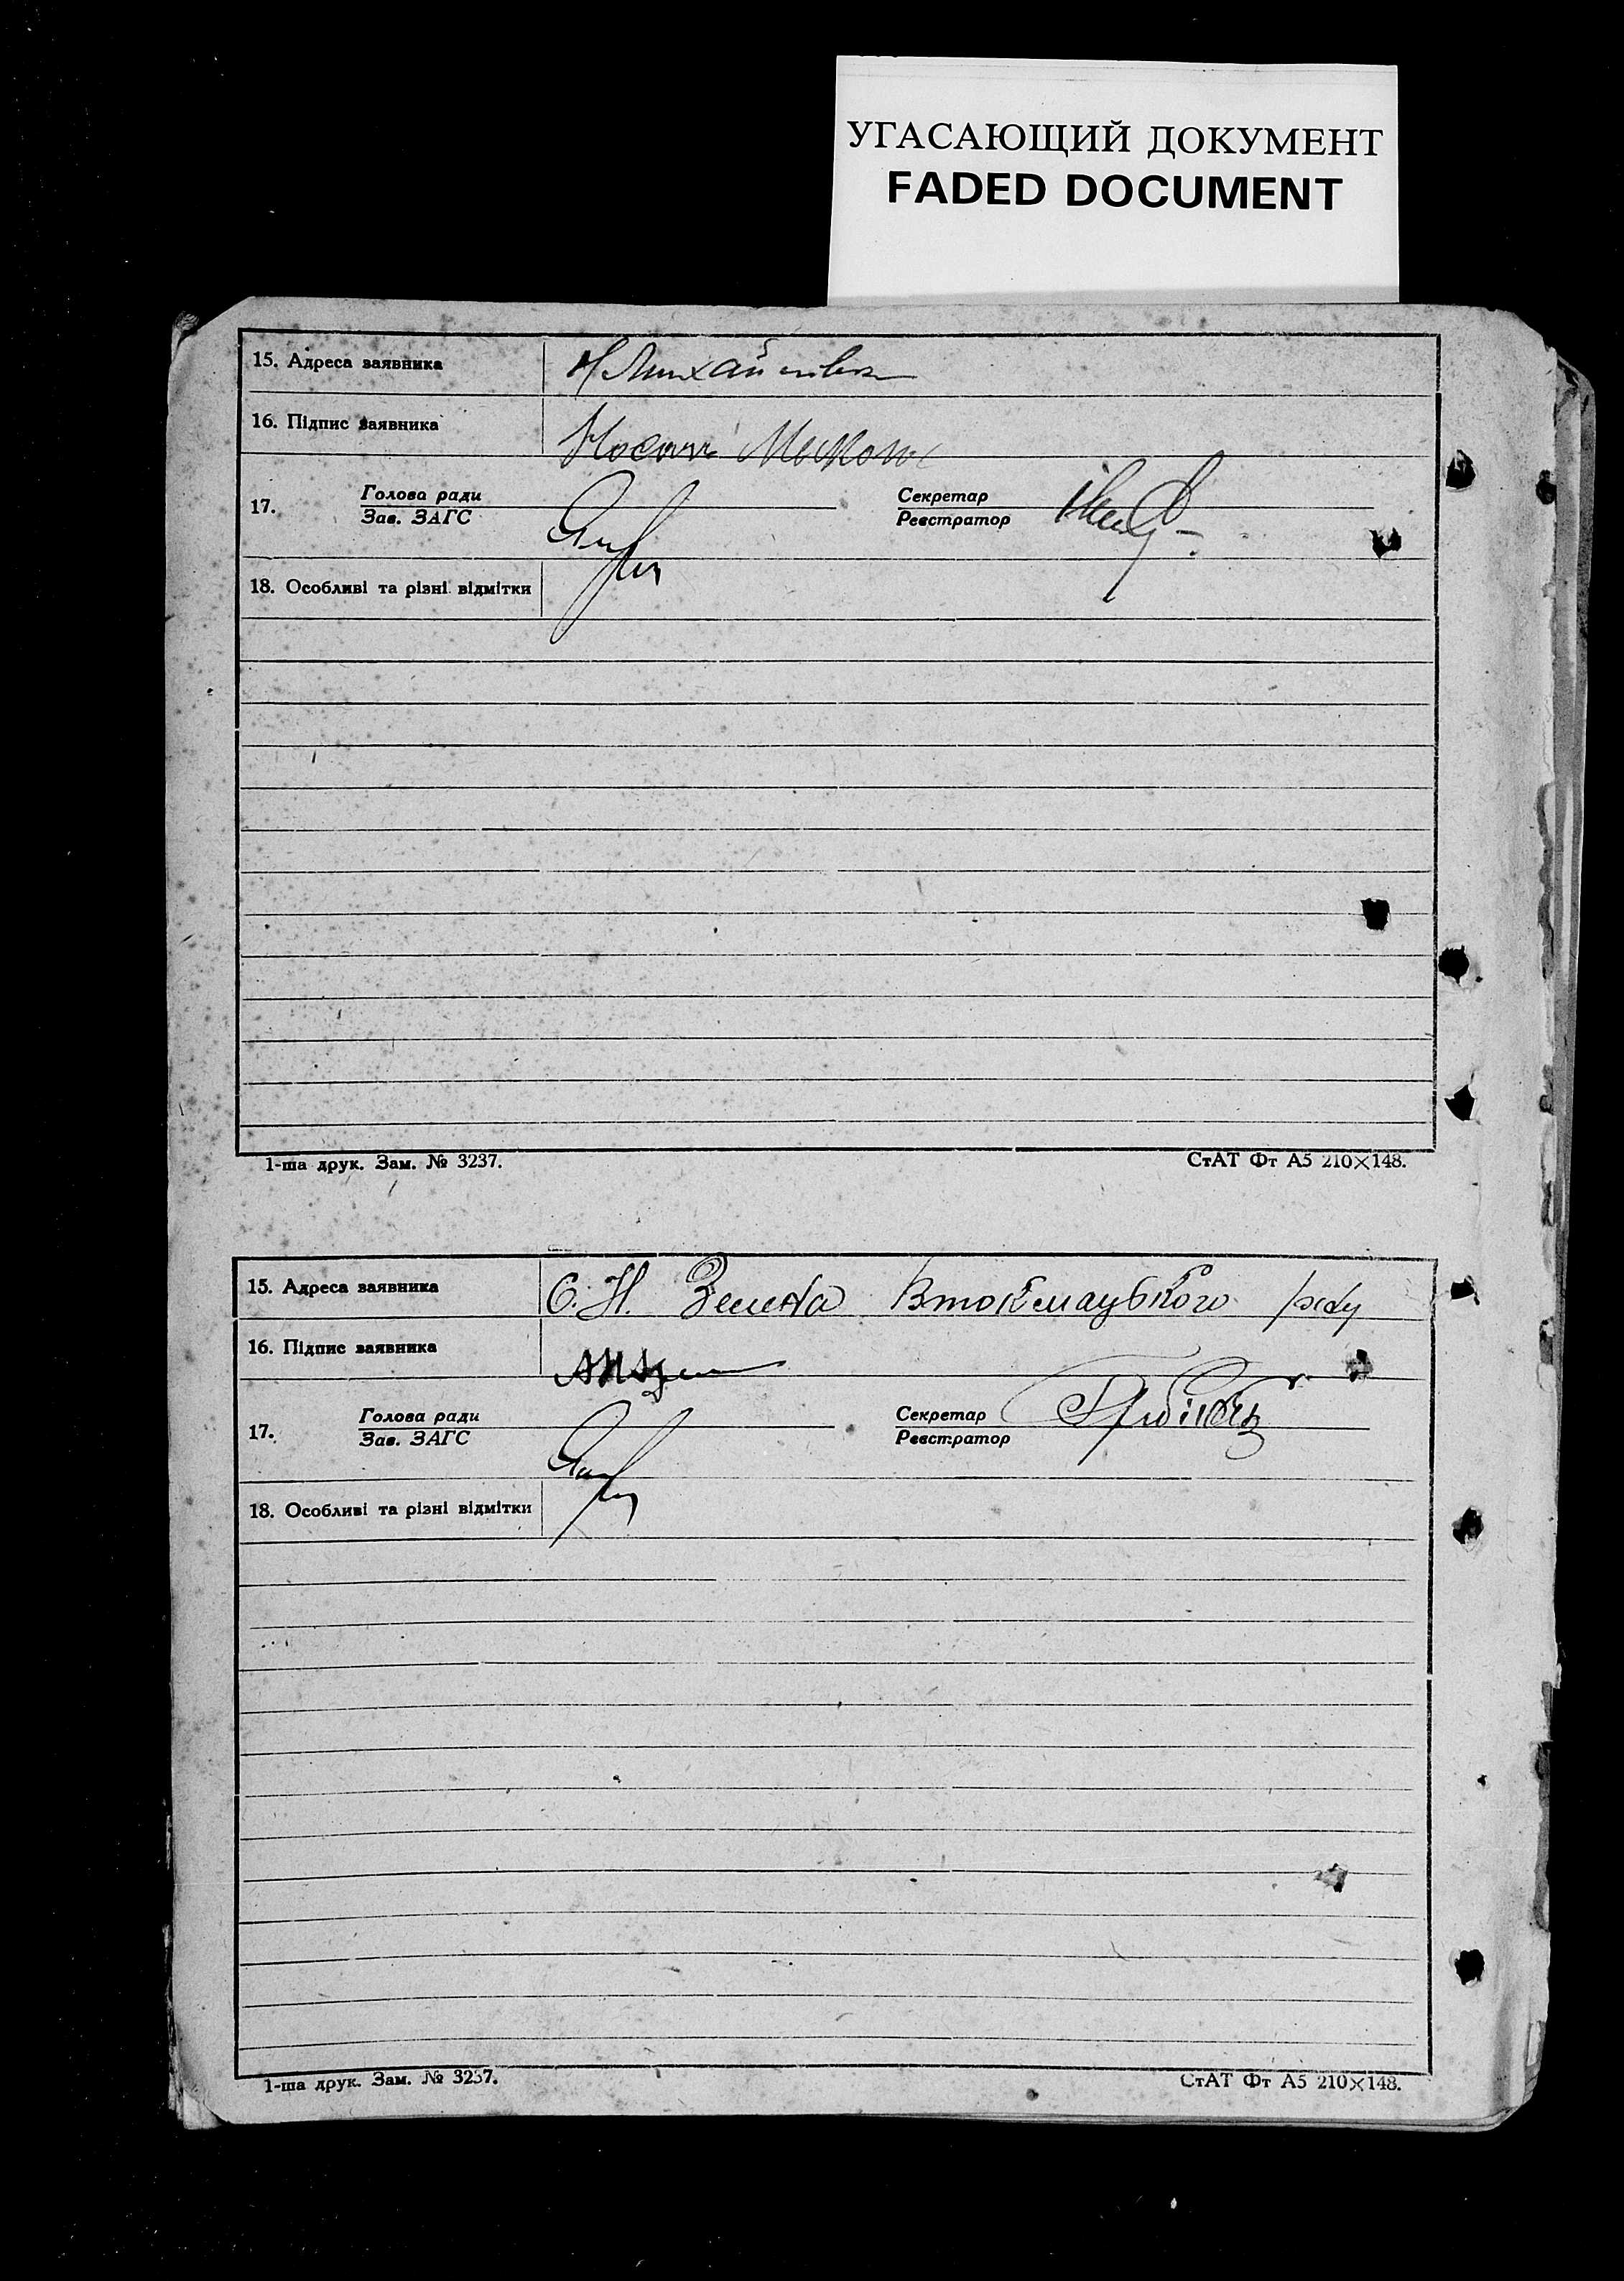 УГАСАЮЩИЙ ДОКУМЕНТ
FADED DOCUMENT
15. Адреса заявника
Н Михайлівка
16. Підпис заявника
17. Голова ради Секретар
Зав. ЗАГС Реєстратор
18. Особливі та різні відмітки
1-ша друк. Зам. № 3237. СтАТ Фт А5 210×148.
15. Адреса заявника
С. Н. Зелена Втокмацького р-ну
16. Підпис заявника
17. Голова ради Секретар
Зав. ЗАГС Реєстратор
18. Особливі та різні відмітки
1-ша друк. Зам. № 3237. СтАТ Фт А5 210×148.